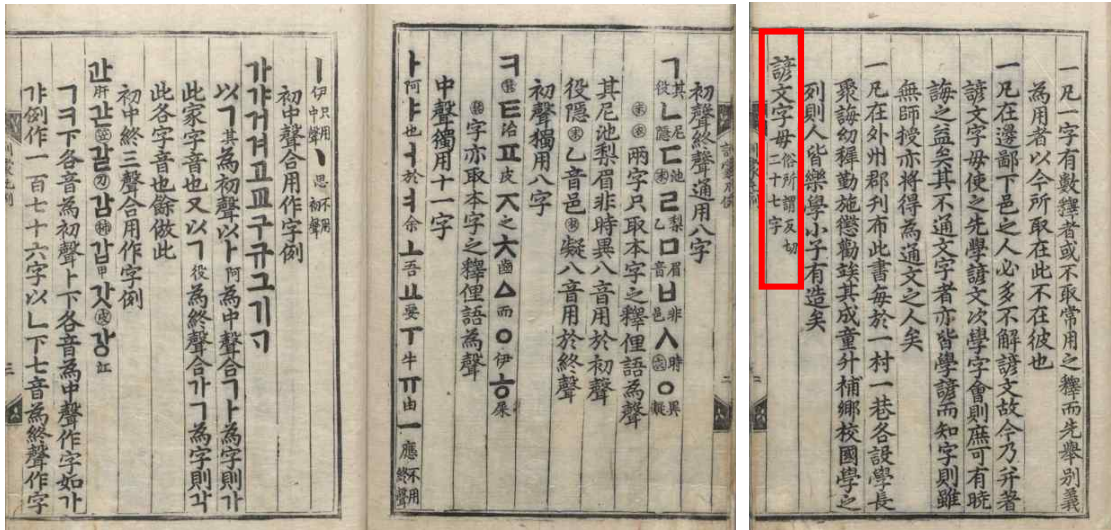 一凡一字有數釋者或不取常用之釋而先擧別義
為用者以今所取在此不在彼也
一凡在邊鄙下邑之人必多不解諺文故今乃幷著
諺文字母使之先學諺文次學字會則庶可有曉
誨之益矣其不通文字者亦皆學諺而知字則雖
無師授亦將得為通文之人矣
一凡在外州郡刊布此書每於一村一巷各設學長
聚誨幼穉勤施懲勸竢其成童升補鄉校國學之
列則人皆樂學小子有造矣
諺文字母 俗所謂反切二十七字
初聲終聲通用八字
ㄱ其役ㄴ尼隱ㄷ池末ㄹ梨乙ㅁ眉音ㅂ非邑ㅅ時衣ㆁ異凝
末衣兩字只取本字之釋俚語為聲
其尼池梨眉非時異八音用於初聲
役隱末乙音邑衣凝八音用於終聲
初聲獨用八字
ㅋ箕ㅌ治ㅍ皮ㅈ之ㅊ齒ㅿ而ㅇ伊ㅎ屎
箕字亦取本字之釋俚語為聲
中聲獨用十一字
ㅏ阿ㅑ也ㅓ於ㅕ余ㅗ吾ㅛ要ㅜ牛ㅠ由ㅡ應不用終聲
ㅣ伊只用中聲ㆍ思不用初聲
初中聲合用作字例
가갸거겨고교구규그기ᄀᆞ
以ㄱ其為初聲以ㅏ阿為中聲合ㄱㅏ為字則가
此家字音也又以ㄱ役為終聲合가ㄱ為字則각
此各字音也餘倣此
初中終三聲合用作字例
간肝갇笠갈刀감柿갑甲갓皮강江
ㄱㅋ下各音為初聲ㅏ下各音為中聲作字如가
갸例作一百七十六字以ㄴ下七音為終聲作字